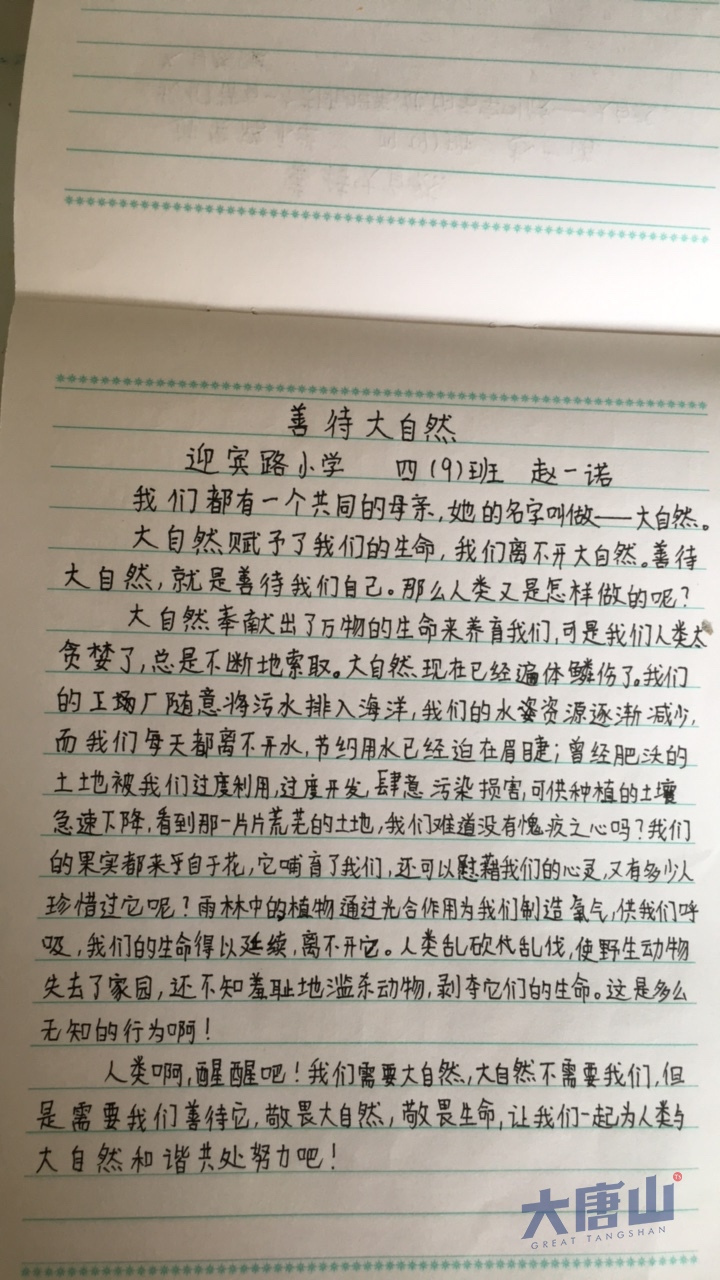 善待大自然
迎宾路小学 四(9)班 赵一诺
我们都有一个共同的母亲,她的名字叫做——大自然。
大自然赋予了我们的生命,我们离不开大自然。善待
大自然,就是善待我们自己。那么人类又是怎样做的呢?
大自然奉献出了万物的生命来养育我们,可是我们人类太
贪婪了,总是不断地索取。大自然现在已经遍体鳞伤了。我们
的工场厂随意将污水排入海洋,我们的水姿资源逐渐减少,
而我们每天都离不开水,节约用水已经迫在眉睫;曾经肥沃的
土地被我们过度利用,过度开发,肆意污染损害,可供种植的土壤
急速下降,看到那一片片荒芜的土地,我们难道没有愧疚之心吗?我们
的果实都来乎自于花,它哺育了我们,还可以慰藉我们的心灵,又有多少人
珍惜过它呢?雨林中的植物通过光合作用为我们制造氧气,供我们呼
吸,我们的生命得以延续,离不开它。人类乱砍代乱伐,使野生动物
失去了家园,还不知羞耻地滥杀动物,剥夺它们的生命。这是多么
无知的行为啊!
人类啊,醒醒吧!我们需要大自然,大自然不需要我们,但
是需要我们善待它,敬畏大自然,敬畏生命,让我们一起为人类与
大自然和谐共处努力吧!
大唐山
GREAT TANGSHAN